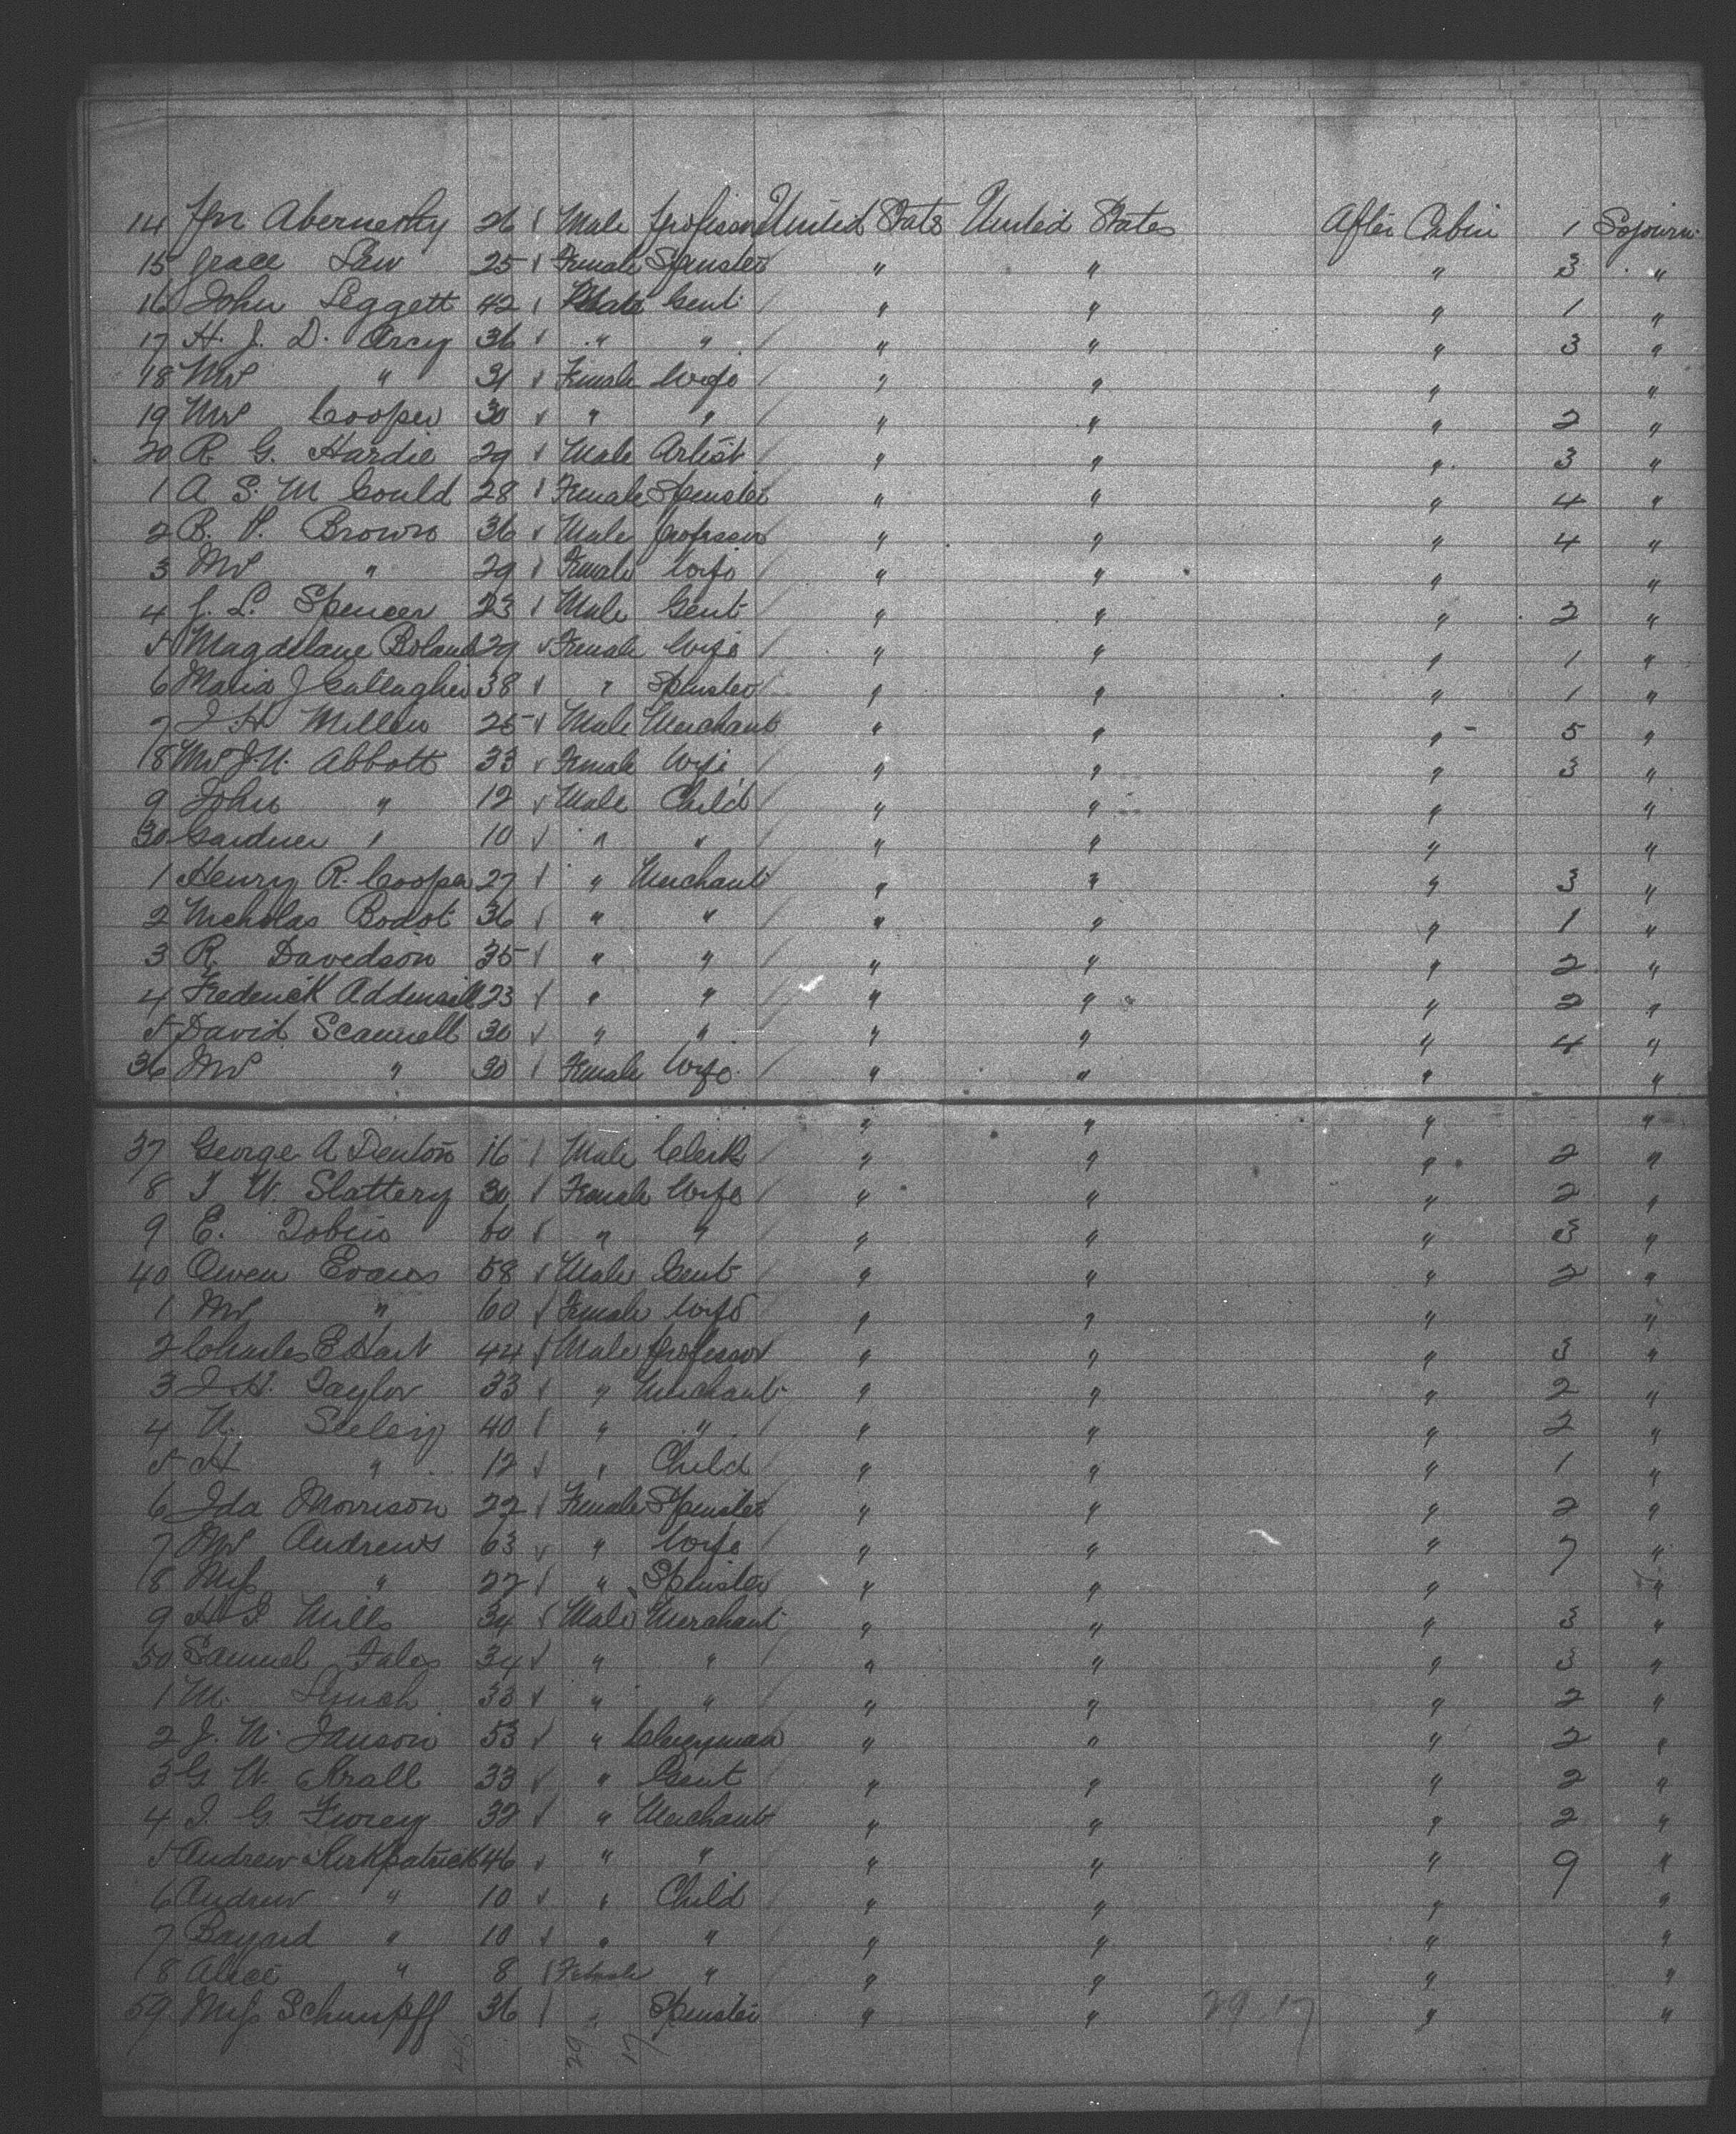 14 Jno Abernethy 26 Male professor United States United States After Cabin 1 Sojourn
15 Grace Law 25 Female Spinster " " " 3 "
16 John Leggett 42 Male Gent " " " 1 "
17 H. J. D. Arcy 36 " " " " " 3 "
18 Mrs " 31 Female Wife " " " "
19 Mrs Cooper 30 " " " " " 2 "
20 R. G. Hardie 29 Male Artist " " " 3 "
1 A S. M Gould 28 Female Spinster " " " 4 "
2 B. P. Brown 36 Male professor " " " 4 "
3 Mrs " 29 Female Wife " " " "
4 J. L. Spencer 23 Male Gent " " " 2 "
5 Magdelane Boland 29 Female Wife " " " 1 "
6 Maria J Gallagher 38 " Spinster " " " 1 "
7 J. H Miller 25 Male Merchant " " " 5 "
8 Mrs J. W. Abbott 33 Female Wife " " " 3 "
9 John " 12 Male Child " " " "
30 Gardner " 10 " " " " " "
1 Henry R. Cooper 27 " Merchant " " " 3 "
2 Nicholas Bodot 36 " " " " " 1 "
3 R. Davedson 35 " " " " " 2 "
4 Frederick Addensell 23 " " " " " 2 "
5 David Scannell 30 " " " " " 4 "
36 Mrs " 30 Female Wife " " " "
" " " "
37 George A Denton 16 Male Clerk " " " 2 "
8 T W. Slattery 30 Female Wife " " " 2 "
9 E. Tobin 60 " " " " " 3 "
40 Owen Evans 58 Male Gent " " " 2 "
1 Mrs " 60 Female Wife " " " "
2 Charles E Hart 44 Male professor " " " 3 "
3 J. H. Taylor 33 " Merchant " " " 2 "
4 W. Seeley 40 " " " " " 2 "
5 H " 12 " Child " " " 1 "
6 Ida Morrison 22 Female Spinster " " " 2 "
7 Mrs Andrews 63 " Wife " " " 7 "
8 Miss " 22 " Spinster " " " "
9 H I Mills 34 Male Merchant " " " 3 "
50 Samuel Fales 34 " " " " " 3 "
1 M. 33 " " " " " 2 "
2 J. N. Janson 53 " Clergyman " " " 2 "
3 G W. Krall 33 " Gent " " " 2 "
4 J. G. Furey 32 " Merchant " " " 2 "
5 Andrew Kirkpatrick 46 " " " " " 9 "
6 Andrew " 10 " Child " " " "
7 Bayard " 10 " " " " " "
8 Alice " 8 Female " " " " "
59 Miss Schumpff 36 " Spinster " " 29 17 " "
29 17